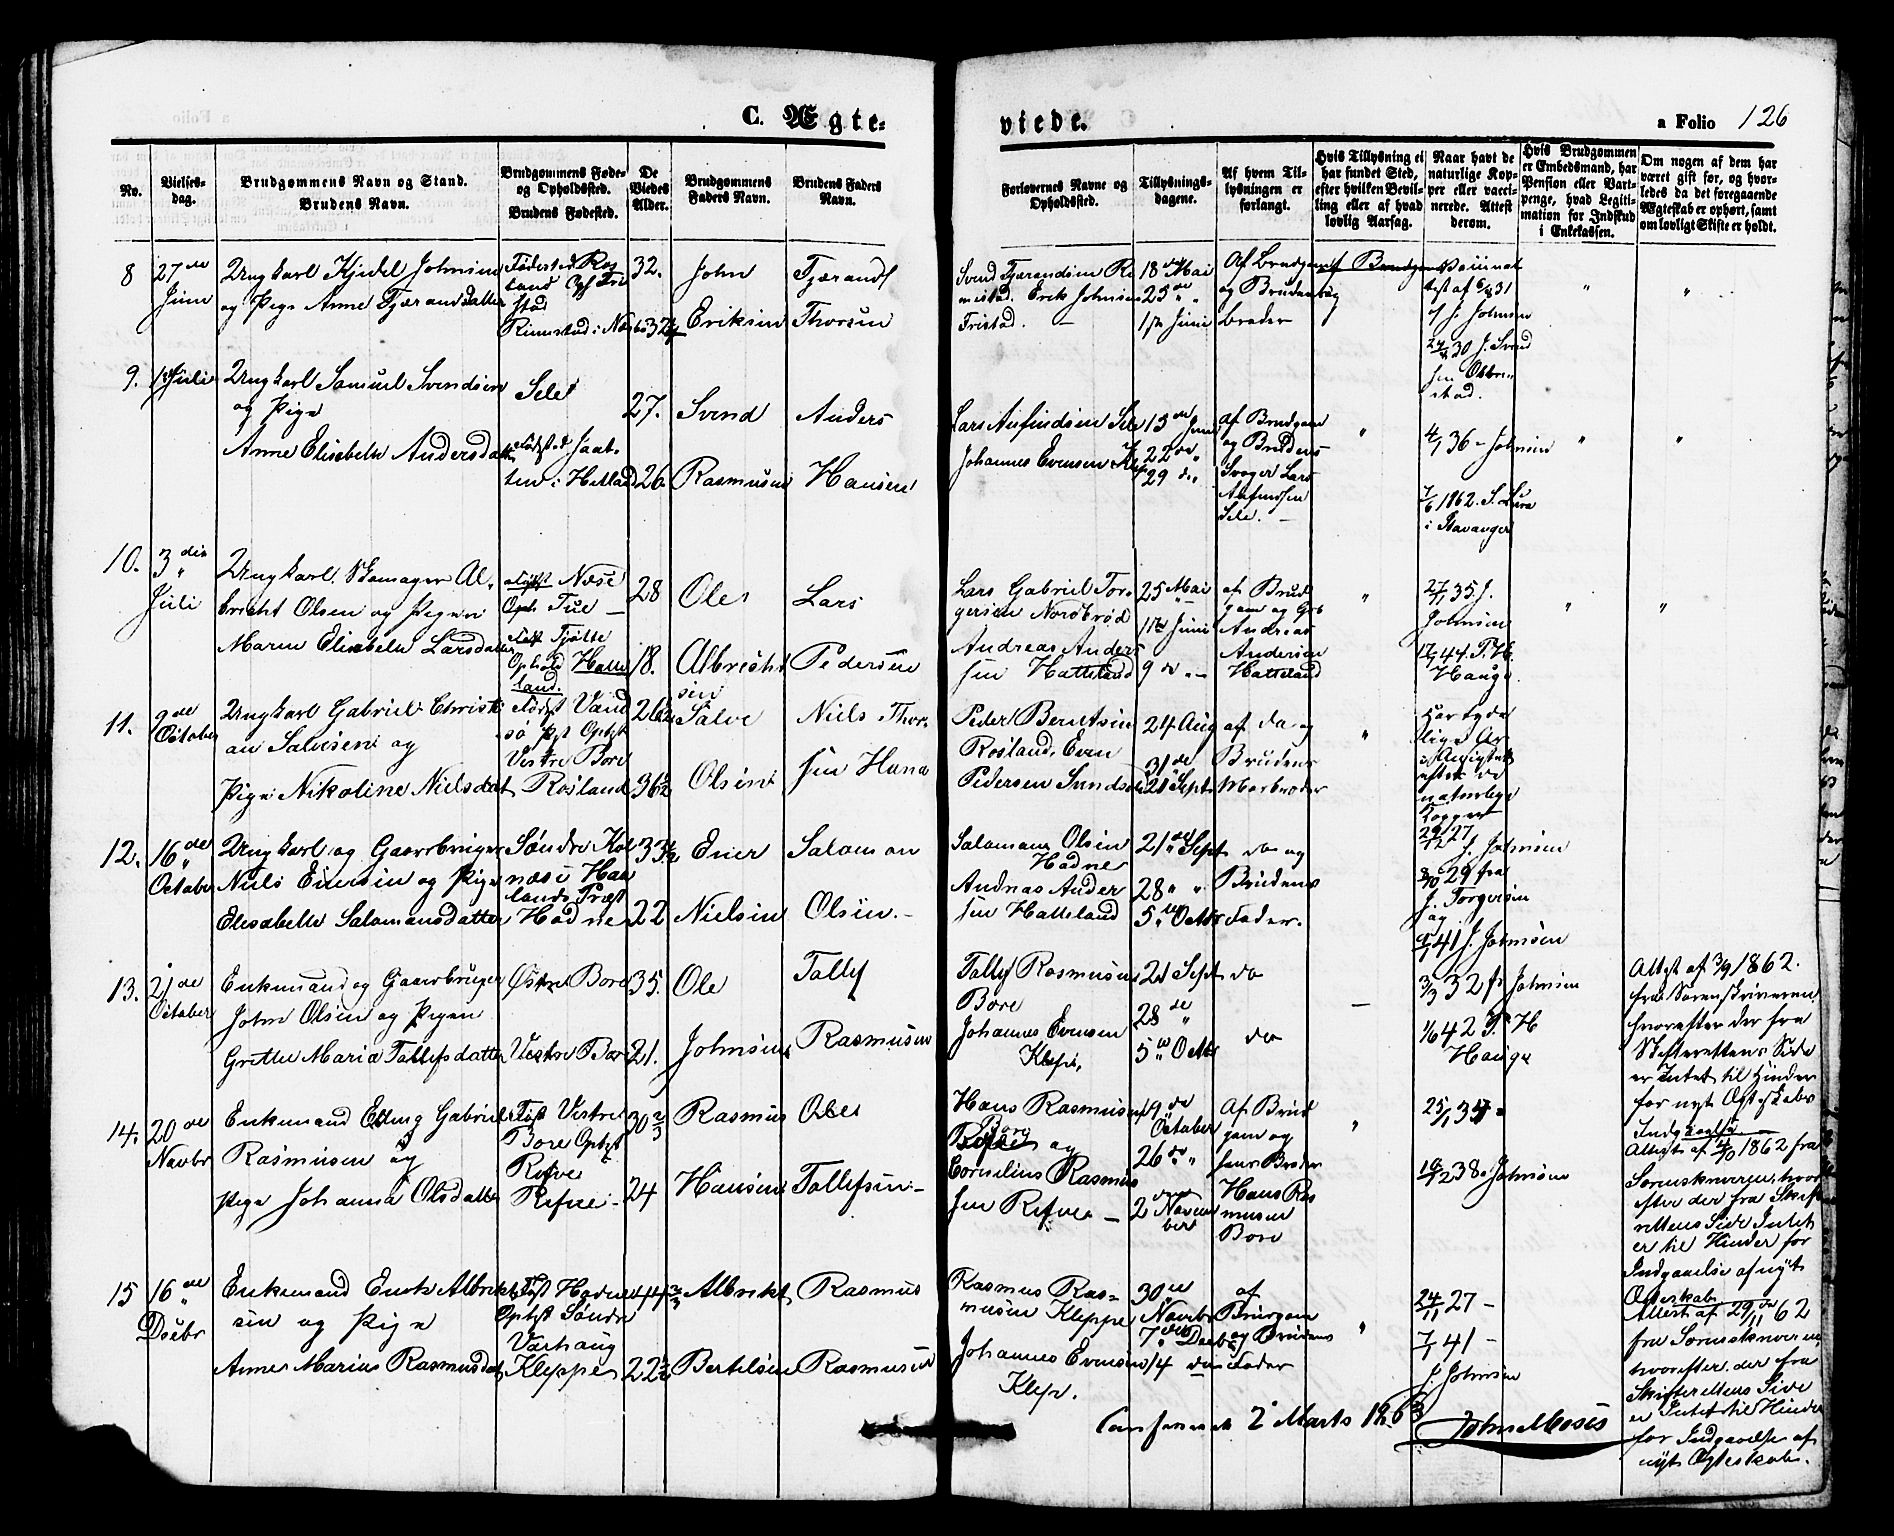 C. Ægte-
viede.
a Folio 126
No.
Vielses-
dag.
Brudgommens Navn og Stand.
Brudens Navn.
Brudgommens Føde-
og Opholdssted.
Brudens Fødested.
De
Viedes
Alder.
Brudgommens
Faders Navn.
Brudens Faders
Navn.
Forlovernes Navne og
Opholdssted.
Tillysnings-
dagene.
Af hvem Til-
lysningen er
forlangt.
Hvis Tillysning ei
har fundet Sted,
efter hvilken Bevil-
ling eller af hvad
lovlig Aarsag.
Naar havt de
naturlige Kop-
per eller vacci-
nerede. Attest
derom.
Hvis Brudgommen
er Embedsmand, har
Pension eller Vart-
penge, hvad Legiti-
mation for Indskud
i Enkekassen.
Om nogen af dem har
været gift før, og hvor-
ledes da det foregaaende
Ægteskab er ophørt, samt
om lovligt Skifte er holdt.
8
27de
Juni
Ungkarl Kjedel Johnsen
og Pige Anne Tjærandsdatter
32.
John
Eriksen
Tjærand
Thorsen
Svend Tjærandsen
Erik Johnsen
Tristad.
18de Mai
25de "
1ste Juni
Af Brudgom
og Brudens
Broder
J. Johnsen
9.
Juli
Ungkarl Samuel Svendsen
og Pige
Anne Elisabeth Andersdatter
Sele
Hetland
27.
26
Svend
Rasmusen
Anders
Hansen
Lars Aufindsen Sele
Johannes Evensen Klep
15de Juni
22de "
29 d. "
af Brudgom
og Brudens
Svoger Lars
Sele.
4/1 36 - Johnsen
7/6 1862. S. Lura
i Stavanger
10.
3die
Juli
Ungkarl, Skomager Al-
brecht Olsen og Pigen
Maren Elisabeth Larsdatter
Født Næse
Oph. Tue
Født Tjøtte
Ophold Hatte
land.
28
18.
Ole
Albrecht
sen
Lars
Pedersen
Lars Gabriel Tor-
gersen Nordbrød
Andreas Anders
sen Hatteland
25 Mai
1ste Juni
9 de
af Brud
gom og
Andreas
Andersen
Hatteland
27/1 35. J.
Johnsen
17/1 44. P. H.
Hauge
11.
2de
October
Ungkarl Gabriel Christi
an Salvesen og
Pige Nikoline Nielsdat
Vestre Bore
Røsland
26 1/2
36 1/2
Salve
Olsen
Niels Thor-
sen Hana
Peder Berntsen
Røsland, Even
Pedersen
24 Aug
31de
21 Sept
af do og
Brudens
Morbroder
naturlige
Kopper
12.
16de
October
Ungkarl og Gaardbruger
Niels Enersen og Pige
Elisabeth Salamonsdatter
Søndre Kol
næs i Haa
lands Præst
Hodne
33 1/2
22
Ener
Nielsen
Salamon
Olsen.-
Salamon Olsen
Hodne
Andreas Ander
sen Hatteland
21de Sept
28 "
5te Octbr
do og
Brudens
Fader.
29/12 27
J. Johnsen
8/10 29 fra
J. Torgersen
og
41 J. Johnsen
13.
21de
October
Enkemand og Gaardbruger
John Olsen og Pigen
Grethe Maria Tollefsdatter
Østre Bore
Vestre Bore
35.
21.
Ole
Johnsen
Tollef
Rasmusen
Tollef Rasmusen
Bore
Johannes Evensen
Klep,
21 Sept
28 de
5te Octbr
do
do
3/3 32 fr Johnsen
1/6 42 P. H
Hauge
Attest af 3/9 1862.
fra Sorenskriveren
hvorefter der fra
Skifterettens Side
er Intet til Hinder
for nyt Ægteskabs
Indgaaelse
14.
20de
Novbr
Enkemand Elling Gabriel
Rasmusen og
Pige Johanna Olsdatter
Født Vestre
Bore Ophst
Refve
Refve -
30 2/3
24
Rasmus
Hansen
Ole
Tollefsen -
Hans Rasmusen
Bore
og
Cornelius Rasmus
sen Refve -
19de
October
26de "
2den Novem
ber
Af Brud
gom og
hans Broder
Hans Ras
musen
Bore
25/1 34 =
19/12 38. Johnsen
Attest af 4/10 1862 fra
Sorenskriveren, hvor
efter der fra Skift
rettens Side Intet
er til Hinder for
Indgaaelse af nyt
Ægteskab
15
16de
Decbr
Enkemand Enok Albrekt
sen og Pige
Anne Marie Rasmusdat
Født Hodne
Ophst Søndre
Varhaug
Kleppe
44 2/3
22 1/2
Albrekt
Bertelsen
Rasmus
Rasmusen
Rasmus Ras-
musen Kleppe
Johannes Evensen
Klep.
30de
Novbr
7de Decbr
14 de
af
Brudgom
og Brudens
Fader
24/11 27 -
7/1 41 -
J. Johnsen
Attest af 29/11 62
fra Sorenskriveren,
hvorefter der fra
Skifterettens Side
er Intet til Hinder
for Indgaaelse af
nyt Ægteskab.
Confereret 2 Marts 1863